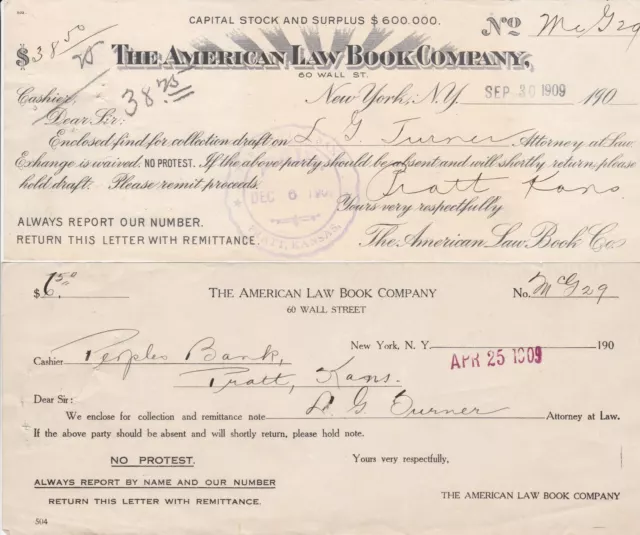 CAPITAL STOCK AND SURPLUS $600.000.
No McG29
$38 50
25
THE AMERICAN LAW BOOK COMPANY,
60 WALL ST.
38 25
Cashier, New York, N.Y. SEP 30 1909 190
Dear Sir:
Enclosed find for collection draft on L G Turner Attorney at Law.
Exchange is waived. NO PROTEST. If the above party should be absent and will shortly return, please
hold draft. Please remit proceeds. Pratt Kans
DEC 6
PRATT, KANSAS.
Yours very respectfully
ALWAYS REPORT OUR NUMBER.
RETURN THIS LETTER WITH REMITTANCE. The American Law Book Co
$6.50 THE AMERICAN LAW BOOK COMPANY No. McG29
60 WALL STREET
New York, N. Y. APR 25 1909 190
Cashier Peoples Bank,
Pratt, Kans.
Dear Sir:
We enclose for collection and remittance note L. G. Turner Attorney at Law.
If the above party should be absent and will shortly return, please hold note.
NO PROTEST. Yours very respectfully,
ALWAYS REPORT BY NAME AND OUR NUMBER
RETURN THIS LETTER WITH REMITTANCE. THE AMERICAN LAW BOOK COMPANY
504